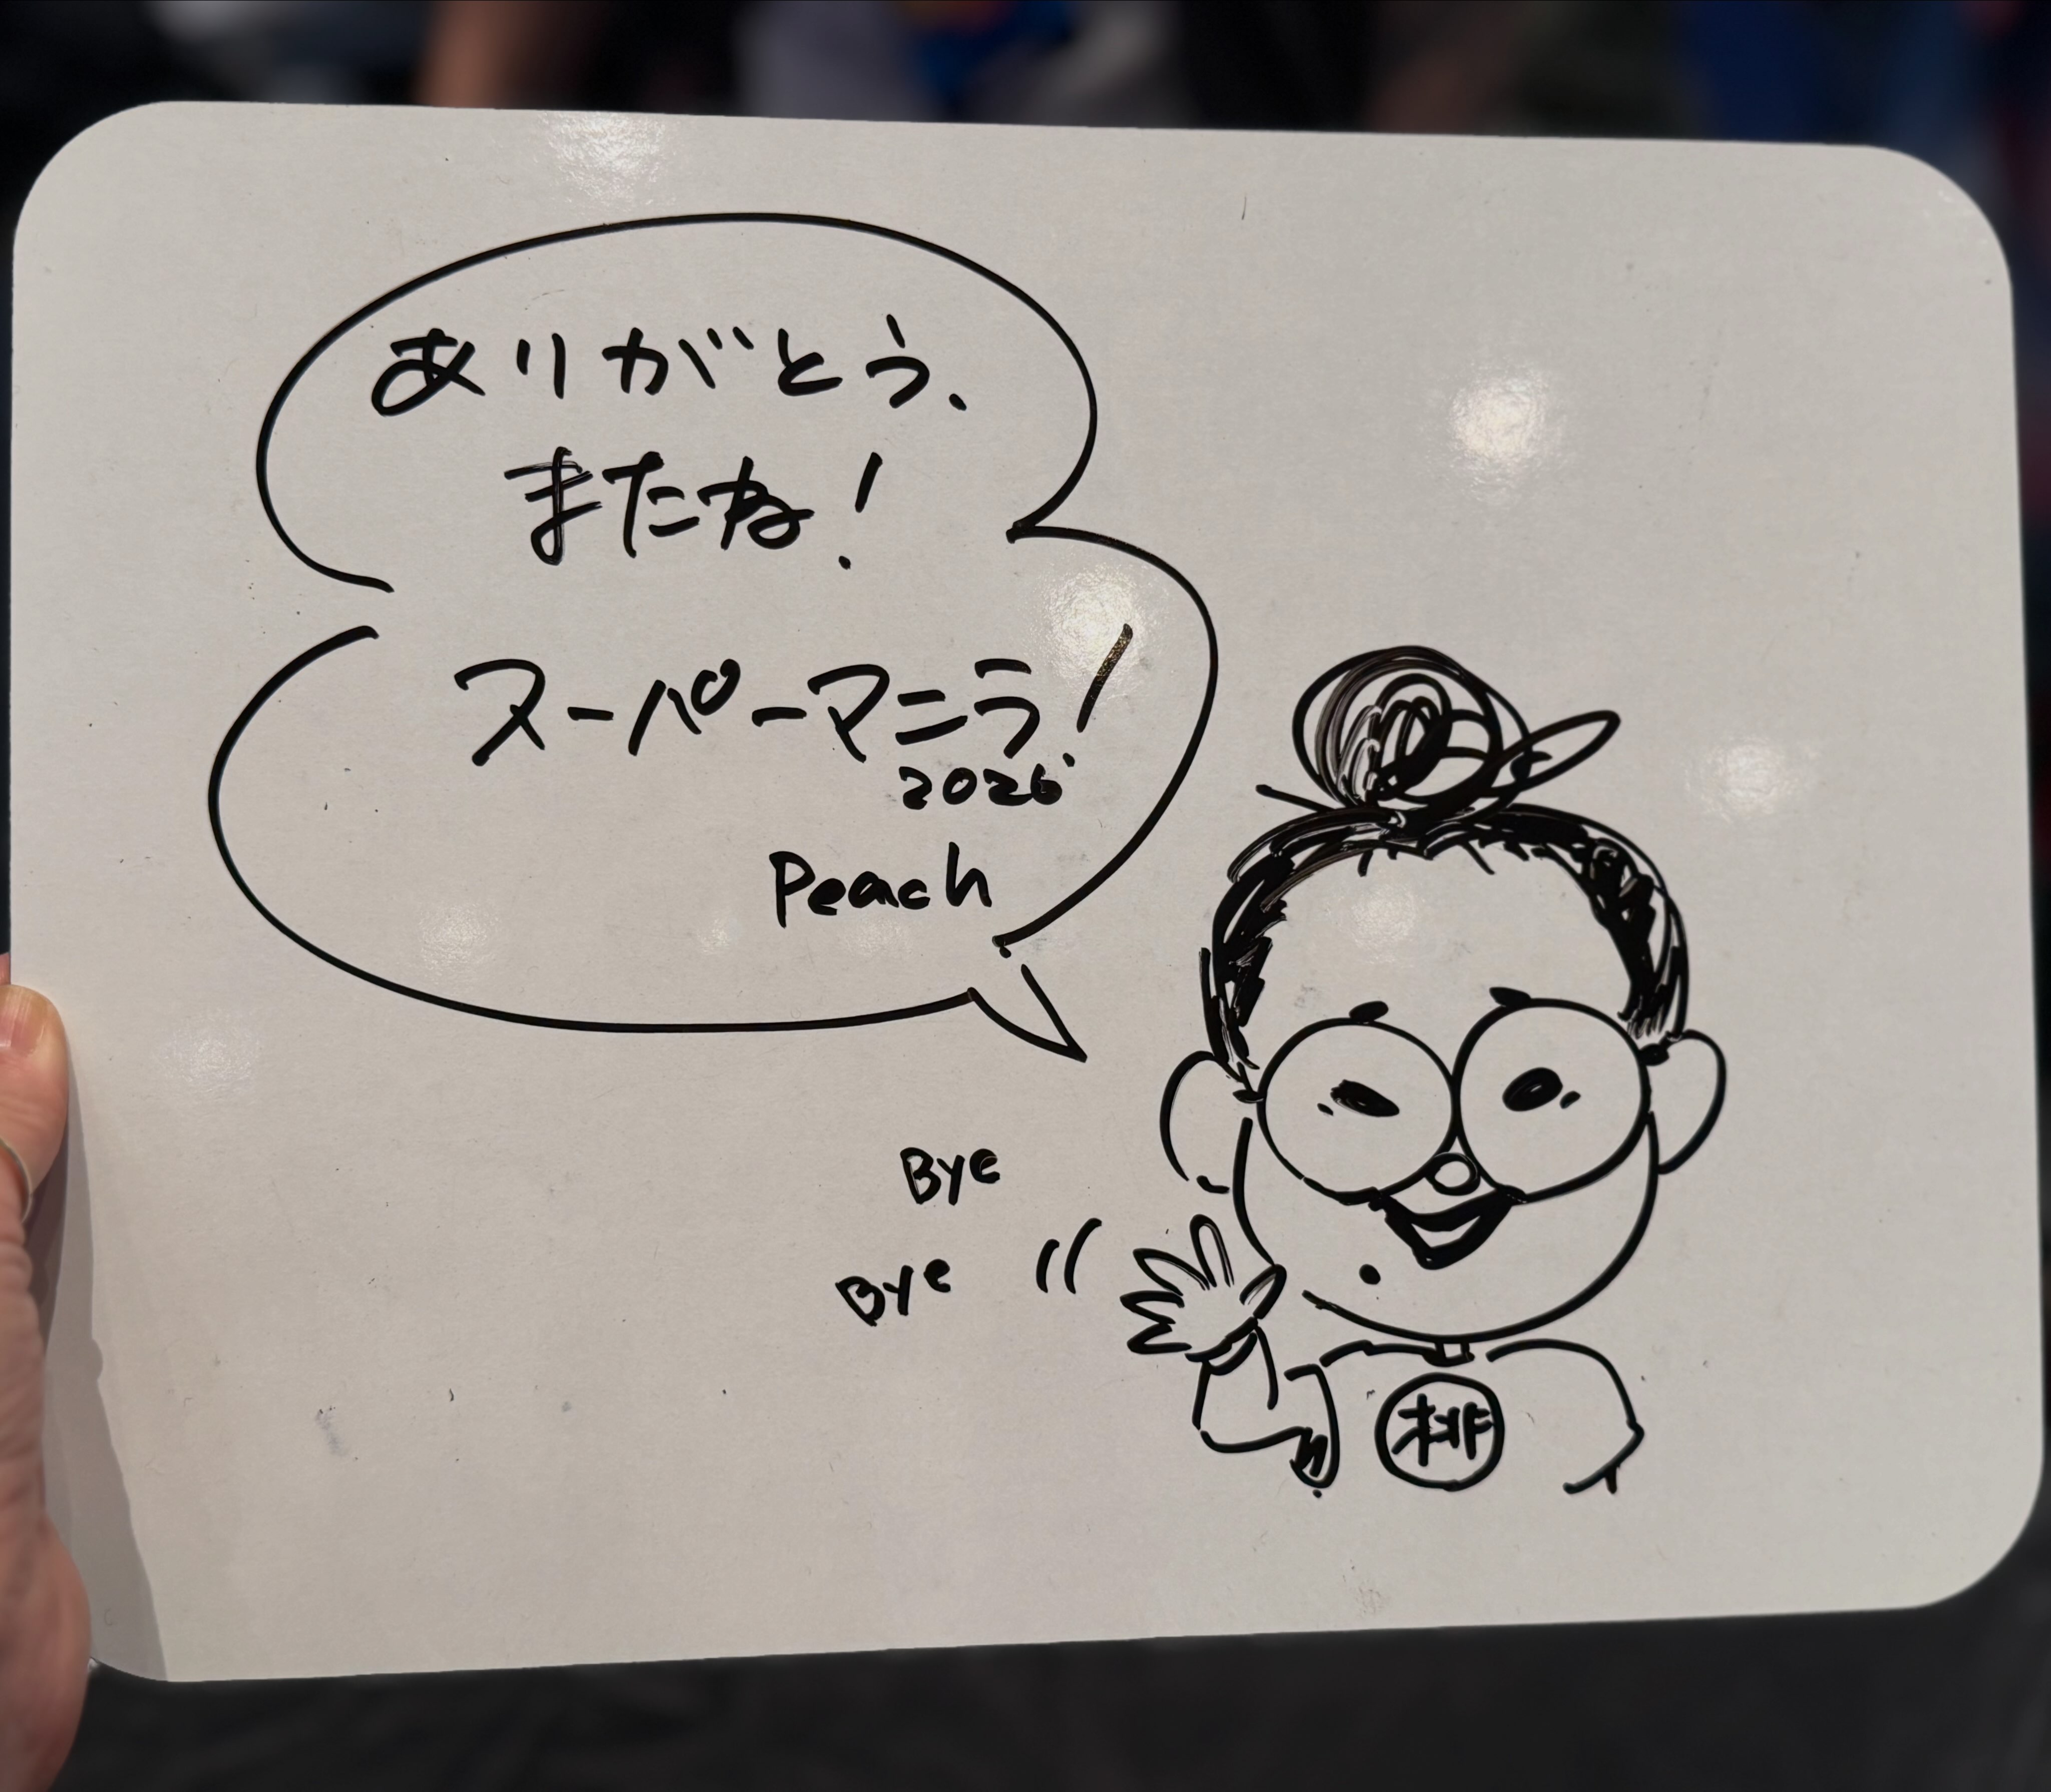 ありがとう、
またね！
スーパーマニラ！
2026
Peach
Bye
Bye
桃